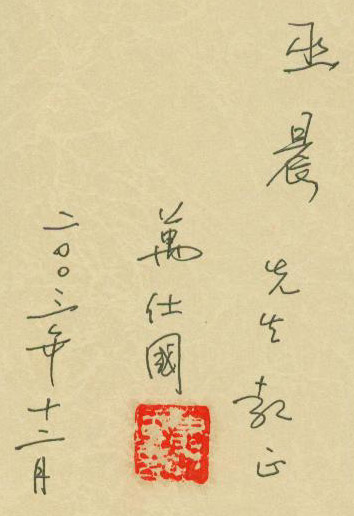 巫晨先生教正
萬仕國
二〇〇三年十二月